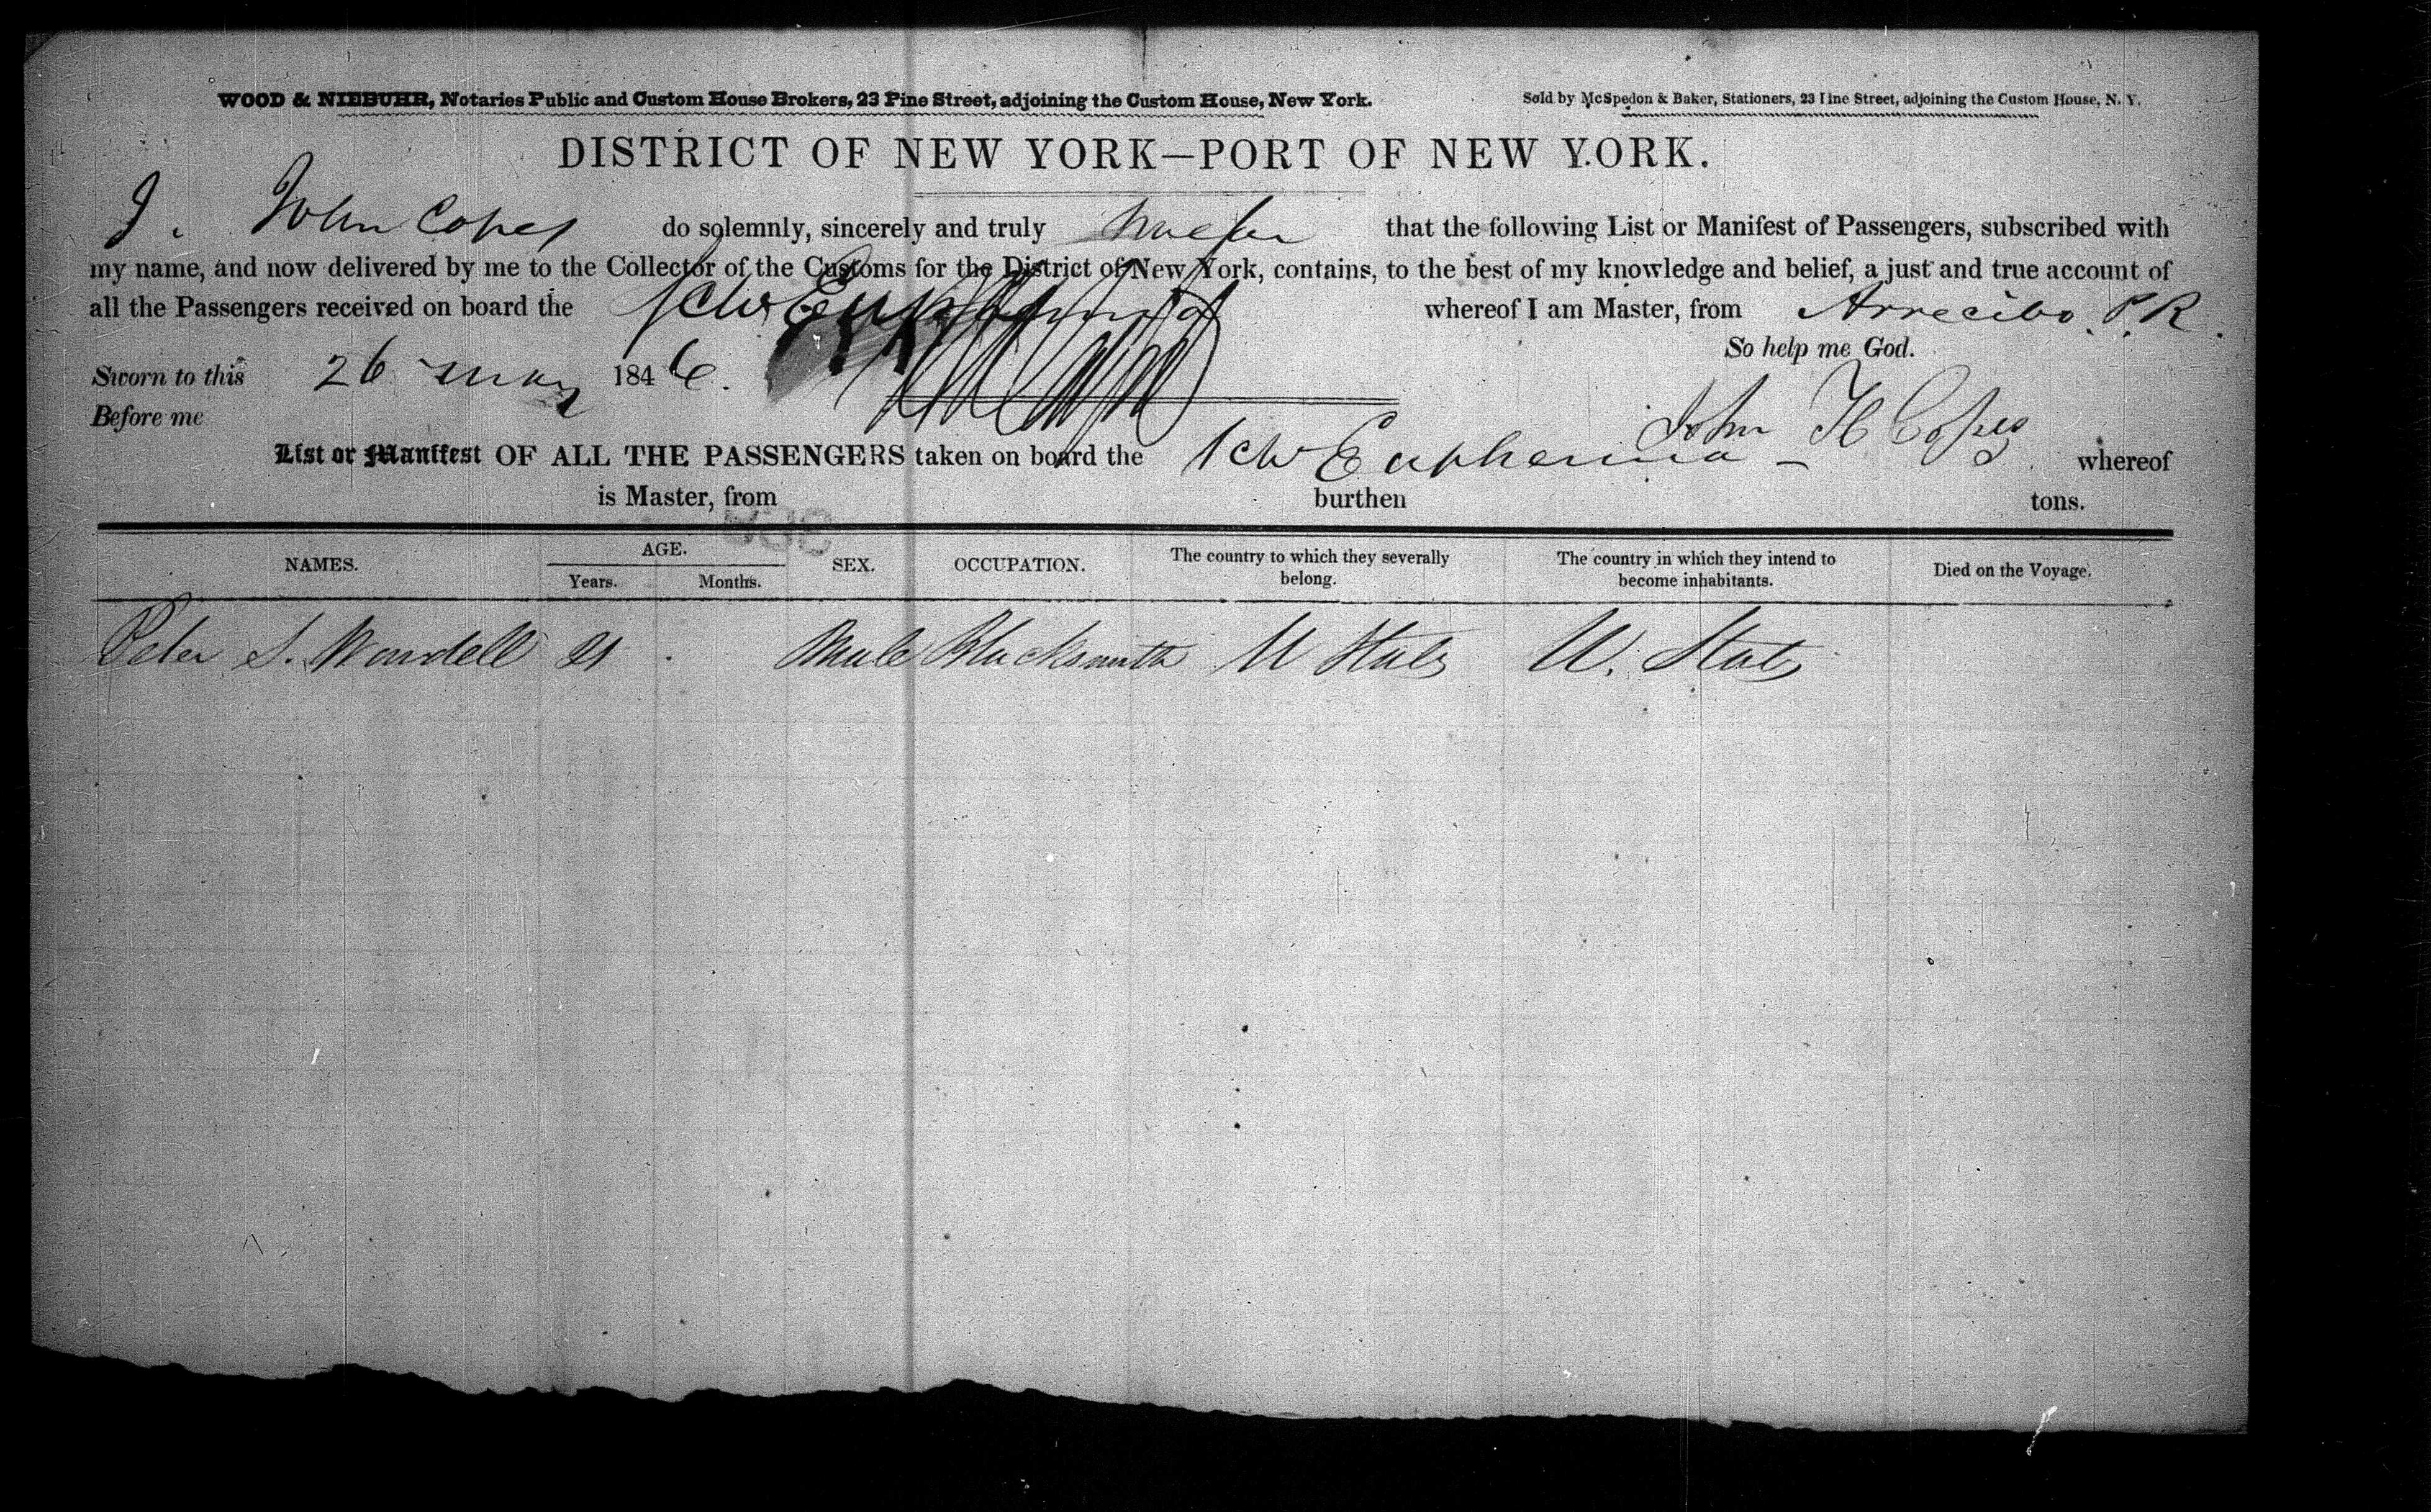 WOOD & NIEBUHR, Notaries Public and Custom House Brokers, 23 Pine Street, adjoining the Custom House, New York. Sold by McSpedon & Baker, Stationers, 23 Pine Street, adjoining the Custom House, N. Y.
DISTRICT OF NEW YORK—PORT OF NEW YORK.
I, John Copes do solemnly, sincerely and truly swear that the following List or Manifest of Passengers, subscribed with
my name, and now delivered by me to the Collector of the Customs for the District of New York, contains, to the best of my knowledge and belief, a just and true account of
all the Passengers received on board the Schr whereof I am Master, from Arrecibo. P.R.
So help me God.
Sworn to this 26 May 1846.
Before me
John H Copes
List or Manifest OF ALL THE PASSENGERS taken on board the Schr Euphemia whereof
is Master, from burthen tons.
NAMES. AGE. Years. Months. SEX. OCCUPATION. The country to which they severally belong. The country in which they intend to become inhabitants. Died on the Voyage.
Peter S. Wandell 21 Male Blacksmith U States U. States